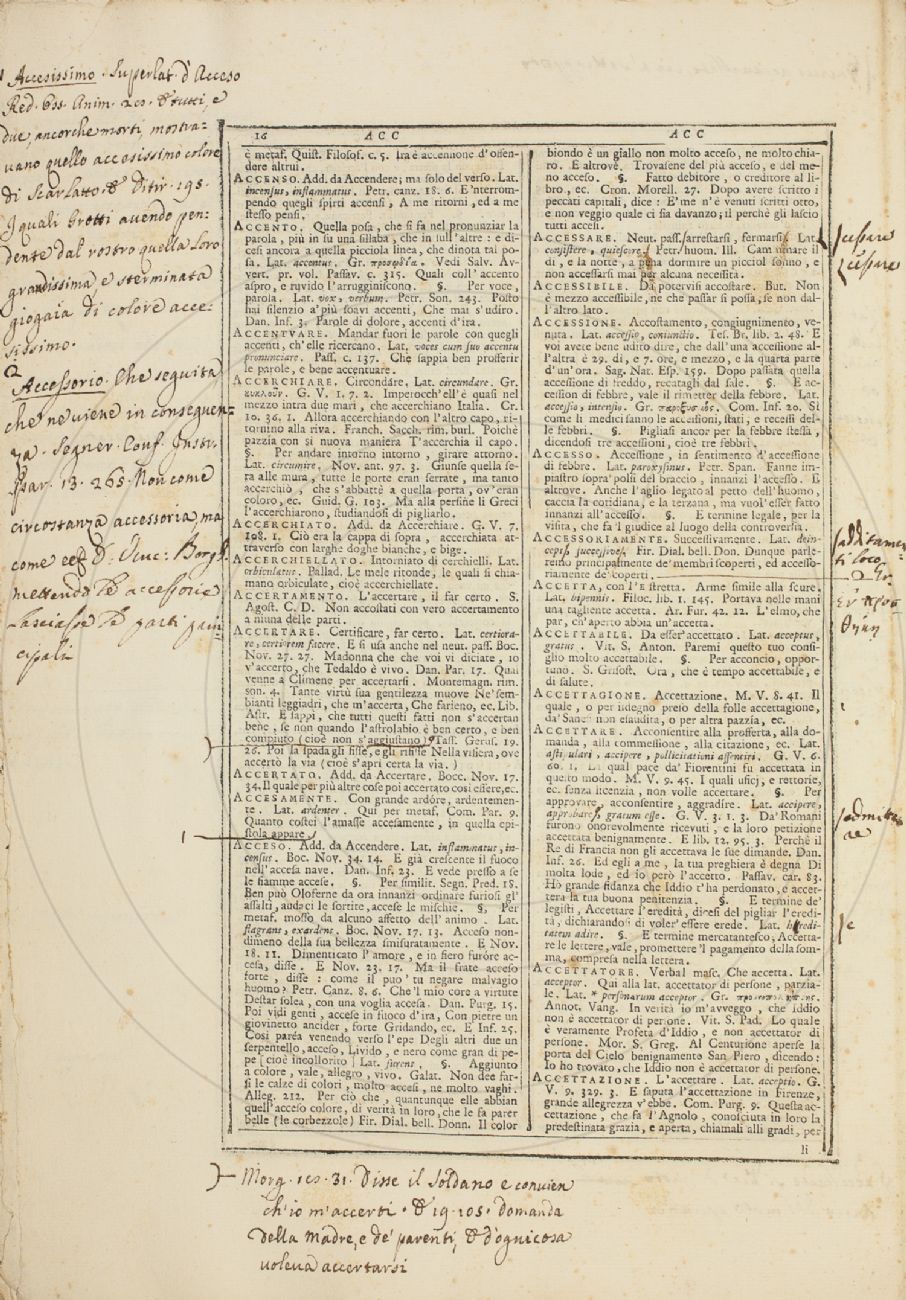 Accesissimo. Superlat. d'Acceso
Red. Oss. Anim. 20. & tutti, e
due, ancorche morti, mostra=
vano quello accesissimo colore
di Scarlatto. & Ditir. 195.
I quali Grotti avendo pen=
dente dal rostro quella loro
grandissima e sterminata
giogaia di colore acce=
sissimo.
Accessorio. Che seguita
che ne viene in conseguen=
za. Segner. Conf. Instr.
par. 13. 265. Non come
circostanza accessoria, ma
come
mettendo le accessorie
lasciasse le parti prin
cipali
16 ACC
è metaf. Quist. Filosof. c. 5. Ira è accensione d'offen-
dere altrui.
ACCENSO. Add. da Accendere; ma solo del verso. Lat.
incensus, inflammatus. Petr. canz. 18. 6. E'nterrom-
pendo quegli spirti accensi, A me ritorni, ed a me
stesso pensi.
ACCENTO. Quella posa, che si fa nel pronunziar la
parola, più in su una sillaba, che in sull'altre: e di-
cesi ancora a quella picciola linea, che dinota tal po-
sa. Lat. accentus. Gr. προσῳδία. Vedi Salv. Av-
vert. pr. vol. Passav. c. 315. Quali coll'accento
aspro, e ruvido l'arrugginiscono. §. Per voce,
parola. Lat. vox, verbum. Petr. Son. 243. Posto
hai silenzio a'più soavi accenti, Che mai s'udiro.
Dan. Inf. 3. Parole di dolore, accenti d'ira.
ACCENTVARE. Mandar fuori le parole con quegli
accenti, ch'elle ricercano. Lat. voces cum suo accentu
pronunciare. Pass. c. 137. Che sappia ben profferir
le parole, e bene accentuare.
ACCERCHIARE. Circondare, Lat. circundare. Gr.
κυκλοῦν. G. V. 1. 7. 2. Imperocch'ell'è quasi nel
mezzo intra due mari, che accerchiano Italia. Cr.
10. 36. 1. Allora accerchiando con l'altro capo, ri-
tornino alla riva. Franch. Sacch. rim. burl. Poichè
pazzia con sì nuova maniera T'accerchia il capo.
§. Per andare intorno intorno, girare attorno.
Lat. circumire. Nov. ant. 97. 3. Giunse quella se-
ra alle mura, tutte le porte eran serrate, ma tanto
accerchiò, che s'abbattè a quella porta, ov'eran
coloro, ec. Guid. G. 103. Ma alla perfine li Greci
l'accerchiarono, studiandosi di pigliarlo.
ACCERCHIATO. Add. da Accerchiare. G. V. 7.
108. 1. Ciò era la cappa di sopra, accerchiata at-
traverso con larghe doghe bianche, e bige.
ACCERCHIELLATO. Intorniato di cerchielli. Lat.
orbiculatus. Pallad. Le mele ritonde, le quali si chia-
mano orbiculate, cioè accerchiellate.
ACCERTAMENTO. L'accertare, il far certo. S.
Agost. C. D. Non accostati con vero accertamento
a niuna delle parti.
ACCERTARE. Certificare, far certo. Lat. certiora-
re, certiorem facere. E si usa anche nel neut. pass. Boc.
Nov. 27. 27. Madonna che che voi vi diciate, io
v'accerto, che Tedaldo è vivo. Dan. Par. 17. Qual
venne a Climene per accertarsi. Montemagn. rim.
son. 4. Tante virtù sua gentilezza muove Ne'sem-
bianti leggiadri, che m'accerta, Che farieno, ec. Lib.
Astr. E sappi, che tutti questi fatti non s'accertan
bene, se non quando l'astrolabio è ben certo, e ben
compiuto (cioè non s'aggiustano) Tass. Gerus. 19.
26. Poi la spada gli fisse, e gli rifisse Nella visiera, ove
accertò la via (cioè s'aprì certa la via.)
ACCERTATO. Add. da Accertare. Bocc. Nov. 17.
34. Il quale per più altre cose poi accertato così essere, ec.
ACCESAMENTE. Con grande ardóre, ardentemen-
te. Lat. ardenter. Qui per metaf. Com. Par. 9.
Quanto costei l'amasse accesamente, in quella epi-
stola appare.
ACCESO. Add. da Accendere. Lat. inflammatus, in-
census. Boc. Nov. 34. 14. E già crescente il fuoco
nell'accesa nave. Dan. Inf. 23. E vede presso a se
le fiamme accese. §. Per similit. Segn. Pred. 18.
Ben può Oloferne da ora innanzi ordinare furiosi gl'
assalti, audaci le sortite, accese le mischie. §. Per
metaf. mosso da alcuno affetto dell'animo. Lat.
flagrans, exardens. Boc. Nov. 17. 13. Acceso non-
dimeno della sua bellezza smisuratamente. E Nov.
18. 11. Dimenticato l'amore, e in fiero furóre ac-
cesa, disse. E Nov. 23. 17. Ma il frate acceso
forte, disse: come si puo' tu negare malvagio
huomo? Petr. Canz. 8. 6. Che'l mio core a virtute
Destar solea, con una voglia accesa. Dan. Purg. 15.
Poi vidi genti, accese in fuoco d'ira, Con pietre un
giovinetto ancider, forte Gridando, ec. E Inf. 25.
Così paréa venendo verso l'epe Degli altri due un
serpentello, acceso, Livido, e nero come gran di pe-
pe [cioè incollorito] Lat. furens. §. Aggiunto
a colore, vale, allegro, vivo. Galat. Non dee far-
si le calze di colori, molto accesi, ne molto vaghi.
Alleg. 212. Per ciò che, quantunque elle abbian
quell'acceso colore, di verità in loro, che le fa parer
belle (le corbezzole) Fir. Dial. bell. Donn. Il color
ACC
biondo è un giallo non molto acceso, ne molto chia-
ro. E altrove. Trovasene del più acceso, e del me-
no acceso. §. Fatto debitore, o creditore al li-
bro, ec. Cron. Morell. 27. Dopo avere scritto i
peccati capitali, dice: E'me n'è venuti scritti otto,
e non veggio quale ci sia davanzo; il perchè gli lascio
tutti accesi.
ACCESSARE. Neut. pass. arrestarsi, fermarsi. Lat.
consistere, quiescere. Petr. huom. Ill. Camminare il
dì, e la notte, a pena dormire un picciol sonno, e
non accessarsi mai per alcuna necessita.
ACCESSIBILE. Da potervisi accostare. But. Non
è mezzo accessibile, ne che passar si possa, se non dal-
l'altro lato.
ACCESSIONE. Accostamento, congiugnimento, ve-
nuta. Lat. accessio, coniunctio. Tes. Br. lib. 2. 48. E
voi avete bene udito dire, che dall'una accessione al-
l'altra è 29. dì, e 7. ore, e mezzo, e la quarta parte
d'un'ora. Sag. Nat. Esp. 159. Dopo passata quella
accessione di freddo, recatagli dal sale. §. E ac-
cession di febbre, vale il rimetter della febbre. Lat.
accessio, intensio. Gr. παροξυσμός. Com. Inf. 20. Sì
come li medici sanno le accessioni, stati, e recessi del-
le febbri. §. Pigliasi ancor per la febbre stessa,
dicendosi tre accessioni, cioè tre febbri.
ACCESSO. Accessione, in sentimento d'accessione
di febbre. Lat. paroxysmus. Petr. Span. Fanne im-
piastro sopra'polsi del braccio, innanzi l'accesso. E
altrove. Anche l'aglio legato al petto dell'huomo,
caccia la cotidiana, e la terzana, ma vuol'esser fatto
innanzi all'accesso. §. E termine legale, per la
visita, che fa'l giudice al luogo della controversia.
ACCESSORIAMENTE. Successivamente. Lat. dein-
ceps, successive. Fir. Dial. bell. Don. Dunque parle-
remo principalmente de'membri scoperti, ed accesso-
riamente de'coperti.
ACCETTA, con l'E stretta. Arme simile alla scure,
Lat. bipennis. Filoc. lib. 1. 145. Portava nelle mani
una tagliente accetta. Ar. Fur. 42. 12. L'elmo, che
par, ch'aperto abbia un'accetta.
ACCETTABILE. Da esser'accettato. Lat. acceptus,
gratus. Vit. S. Anton. Paremi questo tuo consi-
glio molto accettabile. §. Per acconcio, oppor-
tuno. S. Grisost. Ora, che è tempo accettabile, e
di salute.
ACCETTAGIONE. Accettazione. M. V. 8. 41. Il
quale, o per isdegno preso della folle accettagione,
da'Sanesi non esaudita, o per altra pazzía, ec.
ACCETTARE. Acconsentire alla profferta, alla do-
manda, alla commessione, alla citazione, ec. Lat.
astipulari, accipere, pollicitationi assentiri. G. V. 6.
60. 1. La qual pace da'Fiorentini fu accettata in
questo modo. M. V. 9. 45. I quali uficj, e rettorie,
ec. senza licenzia, non volle accettare. §. Per
approvare, acconsentire, aggradire. Lat. accipere,
approbare, gratum esse. G. V. 3. 1. 3. Da'Romani
furono onorevolmente ricevuti, e la loro petizione
accettata benignamente. E lib. 12. 95. 3. Perchè il
Re di Francia non gli accettava le sue dimande. Dan.
Inf. 26. Ed egli a me, la tua preghiera è degna Di
molta lode, ed io però l'accetto. Passav. car. 83.
Ho grande fidanza che Iddio t'ha perdonato, e accet-
tera la tua buona penitenzia. §. E termine de'
legisti, Accettare l'eredità, dicesi del pigliar l'eredi-
tà, dichiarandosi di voler'essere erede. Lat. heredi-
tatem adire. §. E termine mercatantesco; Accetta-
re le lettere, vale, promettere 'l pagamento della som-
ma, compresa nella lettera.
ACCETTATORE. Verbal masc. Che accetta. Lat.
acceptor. Qui alla lat. accettator di persone, parzia-
le. Lat. * personarum acceptor. Gr. προσωπολήπτης.
Annot. Vang. In verità io m'avveggo, che Iddio
non è accettator di persone. Vit. S. Pad. Lo quale
è veramente Profeta d'Iddio, e non accettator di
persone. Mor. S. Greg. Al Centurione aperse la
porta del Cielo benignamente San Piero, dicendo:
Io ho trovato, che Iddio non è accettator di persone.
ACCETTAZIONE. L'accettare. Lat. acceptio. G.
V. 9. 329. 3. E saputa l'accettazione in Firenze,
grande allegrezza v'ebbe. Com. Purg. 9. Questa ac-
cettazione, che fa l'Agnolo, conosciuta in loro la
predestinata grazia, e aperta, chiamali alli gradi, per
li
cessare
cessare
additamen
ti loco
Ἐν προσ
θήκῃ
admitte
re
e
Morg. 10. 31. Disse il Soldano e convien
ch'io m'accerti. & 19. 105. Domanda
della Madre, e de' parenti, & d'ognicosa
voleva accertarsi